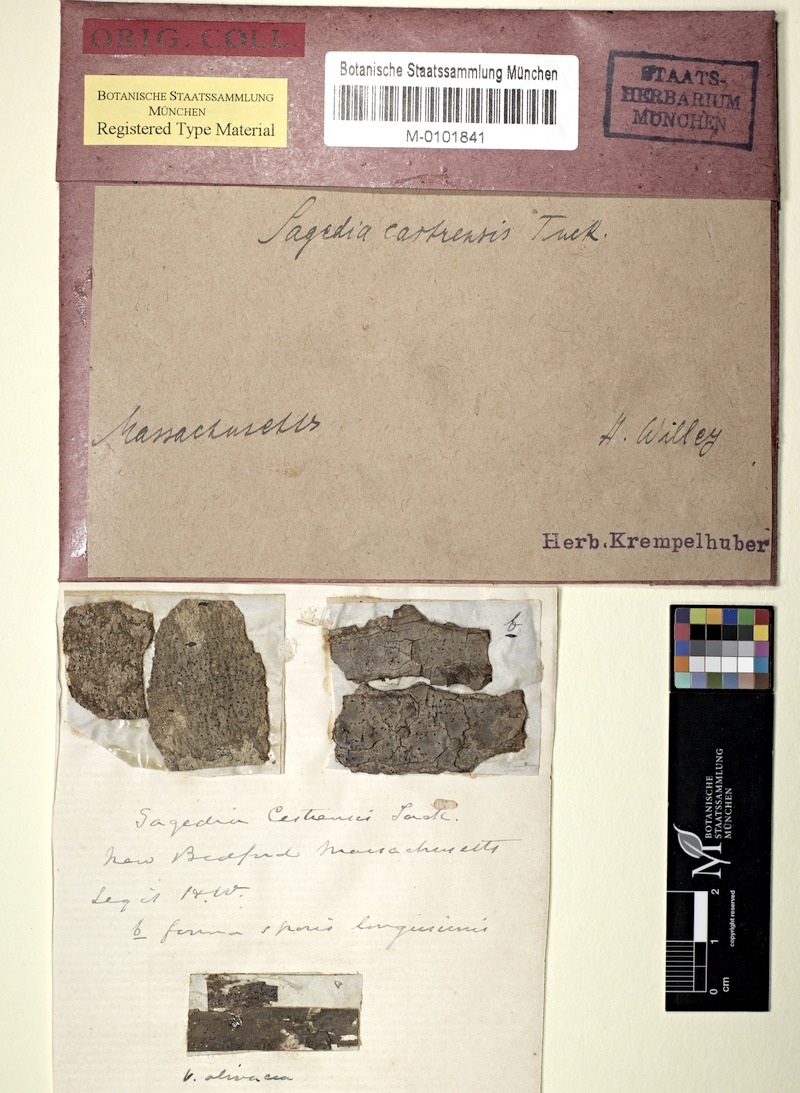 ORIG. COLL.
BOTANISCHE STAATSSAMMLUNG
MÜNCHEN
Registered Type Material
Botanische Staatssammlung München
M-0101841
STAATS-
HERBARIUM
MÜNCHEN
Sagedia castrensis Tuck.
Massachusetts
H. Willey
Herb.Krempelhuber
b
Sagedia Cestrensis Tuck.
New Bedford Massachusetts
Legit H.W.
b forma sporis longissimis
v. olivacea
BOTANISCHE
STAATSSAMMLUNG
MÜNCHEN
copyright reserved
0 1 2
cm